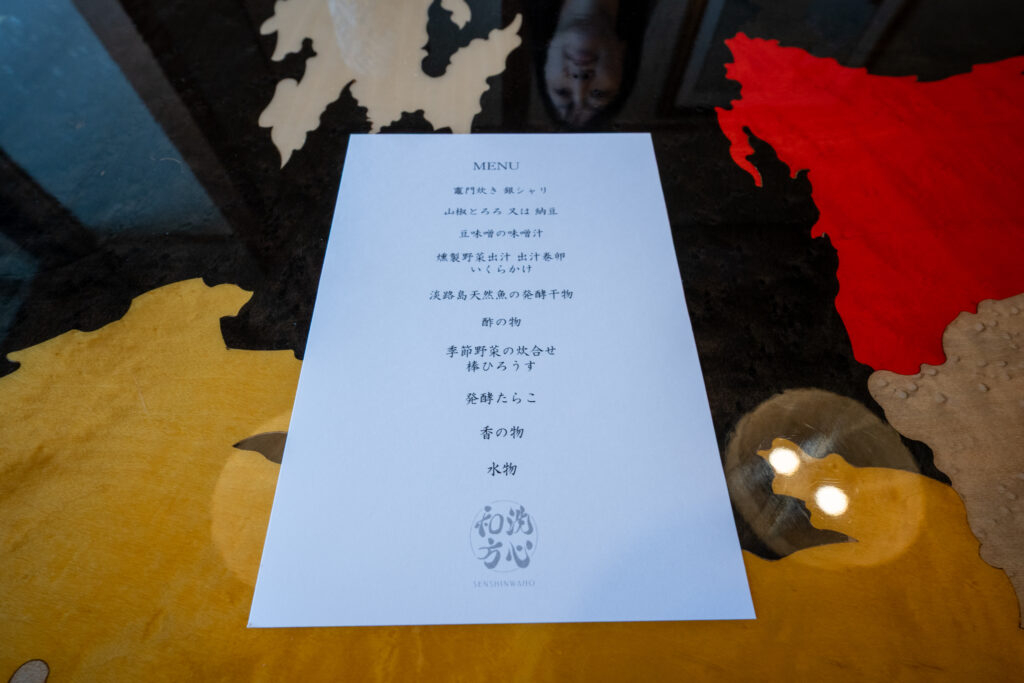 MENU
竈門炊き 銀シャリ
山椒とろろ 又は 納豆
豆味噌の味噌汁
燻製野菜出汁 出汁巻卵
いくらかけ
淡路島天然魚の発酵干物
酢の物
季節野菜の炊合せ
棒ひろうす
発酵たらこ
香の物
水物
洗心
和方
SENSHINWAHO